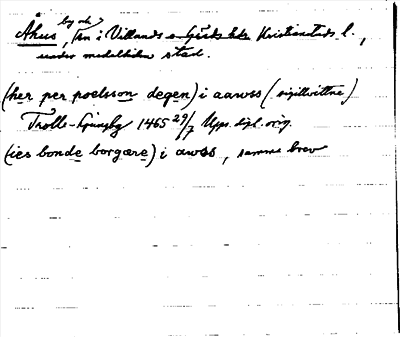 by och
Åhus, kn i Villands o. Gärds hds Kristianstads l.,
under medeltiden stad.
(her per poelsson degen) i aawss (sigillvittne)
Trolle-Ljungby 1465 29/7 Upps. dipl. orig.
(ies bonde borgare) i awss, samma brev